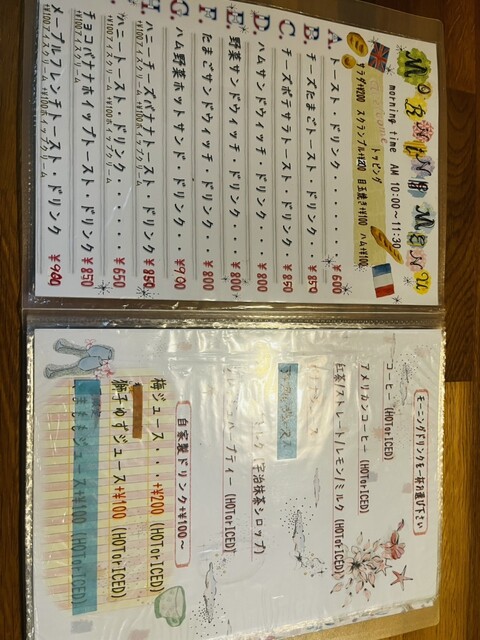 MORNING MENU
morning time AM 10:00～11:30
トッピング
サラダ+¥200 スクランブル+¥200 目玉焼き+¥100 ハム+¥100
A. トースト・ドリンク・・・ ¥600
B. チーズたまごトースト・ドリンク・ ¥850
C チーズポテサラトースト・ドリンク・ ¥850
D. ハムサンドウィッチ・ドリンク・・ ¥800
E 野菜サンドウィッチ・ドリンク・・ ¥800
F たまごサンドウィッチ・ドリンク・・ ¥800
G. ハム野菜ホットサンド・ドリンク・・ ¥900
ハニーチーズバナナトースト・ドリンク ¥850
+¥100アイスクリーム +¥100ホイップクリーム
ハニートースト・ドリンク・・・・ ¥650
+¥100アイスクリーム +¥100ホイップクリーム
チョコバナナホイップトースト・ドリンク ¥850
+¥100アイスクリーム +¥100ホイップクリーム
メープルフレンチトースト・ドリンク ¥900
モーニングドリンクを一杯お選び下さい
コーヒー (HOTorICED)
アメリカンコーヒー (HOTorICED)
紅茶/ストレート/レモン/ミルク (HOTorICED)
(宇治抹茶シロップ)
ティー (HOTorICED)
自家製ドリンク+¥100～
梅ジュース・・・+¥200 (HOTorICED)
獅子ゆずジュース+¥100 (HOTorICED)
ジュース+¥100 (HOTorICED)